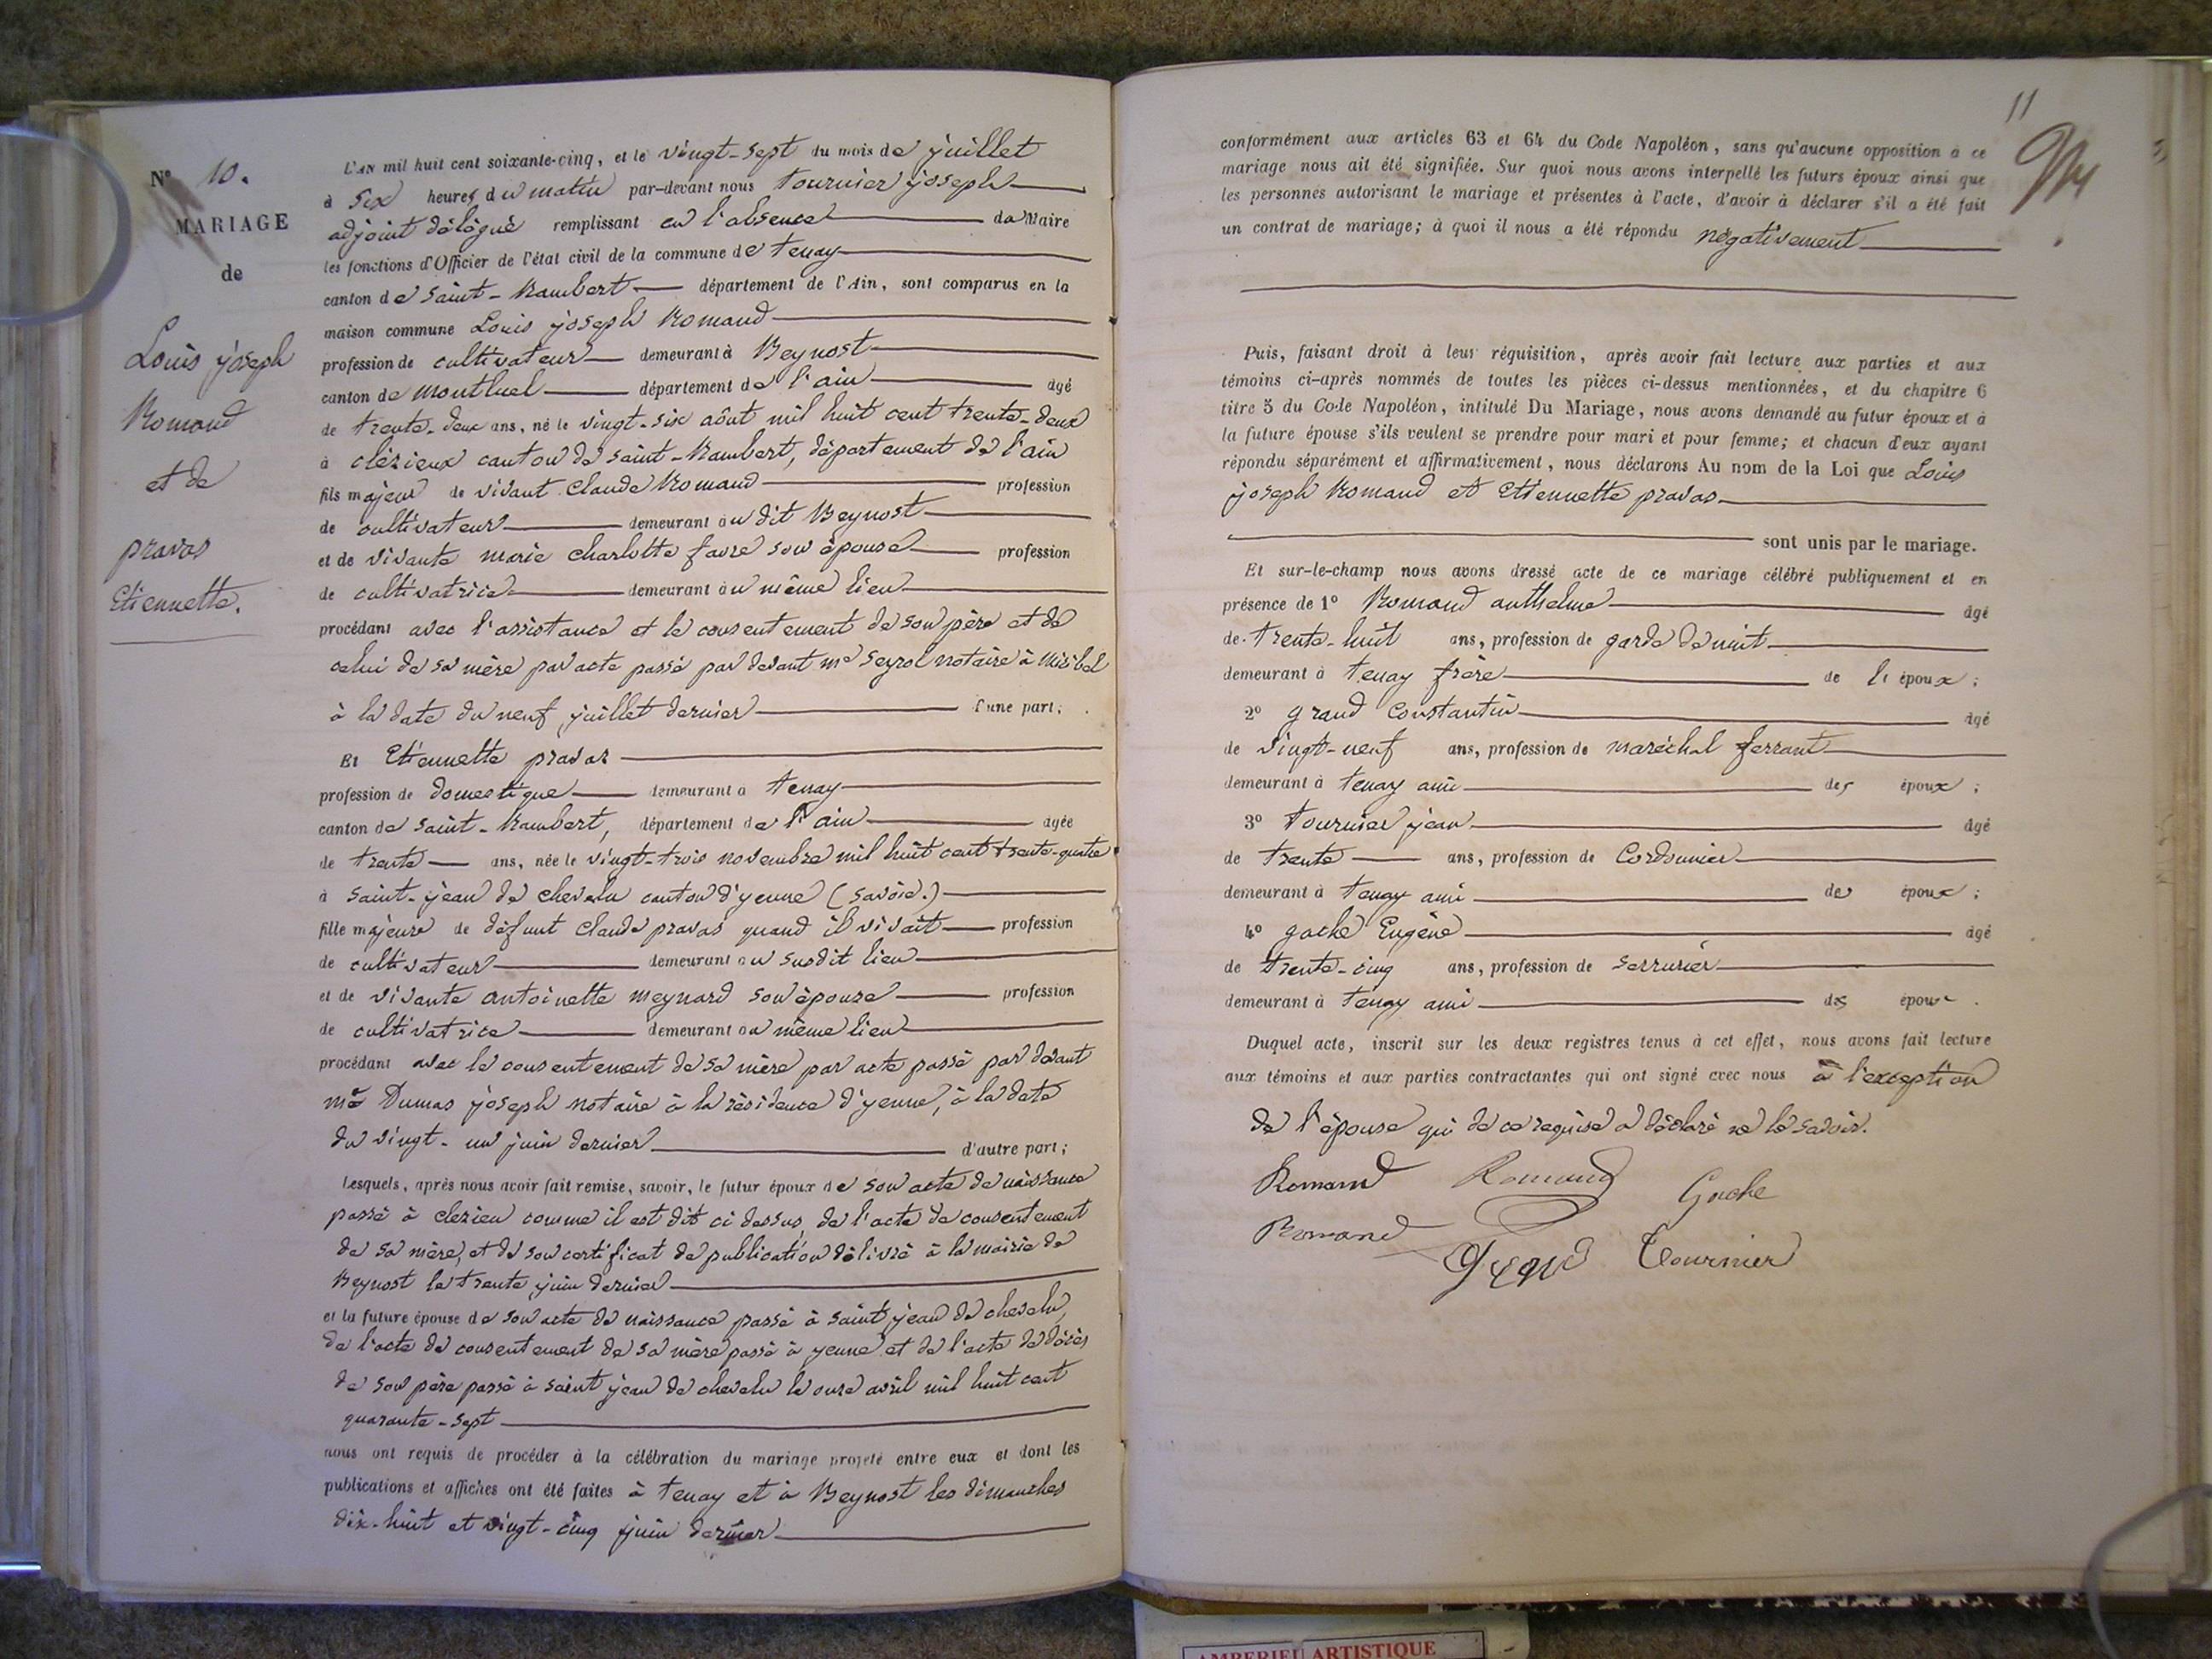 N° 10.
MARIAGE
de
Louis joseph
Romand
et de
pravas
Etiennette.
L'AN mil huit cent soixante-cinq, et le vingt-sept du mois de juillet
à six heures du matin par-devant nous tournier joseph
adjoint délégué remplissant en l'absence du Maire
les fonctions d'Officier de l'état civil de la commune de tenay
canton de saint-Rambert département de l'Ain, sont comparus en la
maison commune Louis joseph Romand
profession de cultivateur demeurant à Beynost
canton de montluel département de l'ain âgé
de trente-deux ans, né le vingt-six août mil huit cent trente-deux
à clézieux canton de saint-Rambert, département de l'ain
fils majeur de vivant Claude Romand profession
de cultivateur demeurant au dit Beynost
et de vivante marie charlotte favre son épouse profession
de cultivatrice demeurant au même lieu
procédant avec l'assistance et le consentement de son père et de
celui de sa mère par acte passé par devant me seyrol notaire à miribel
à la date du neuf juillet dernier d'une part;
Et Etiennette pravas
profession de domestique demeurant à tenay
canton de saint-Rambert, département de l'ain agée
de trente ans, née le vingt-trois novembre mil huit cent trente-quatre
à saint-jean de chevelu canton d'yenne (savoie.)
fille majeure de défunt claude pravas quand il vivait profession
de cultivateur demeurant au susdit lieu
et de vivante antoinette meynard son épouse profession
de cultivatrice demeurant au même lieu
procédant avec le consentement de sa mère par acte passé par devant
me Dumas joseph notaire à la résidence d'yenne, à la date
du vingt-un juin dernier d'autre part;
Lesquels, après nous avoir fait remise, savoir, le futur époux de son acte de naissance
passé à clezieu comme il est dit ci dessus, de l'acte de consentement
de sa mère, et de son certificat de publication délivré à la mairie de
Beynost le trente juin dernier
et la future épouse de son acte de naissance passé à saint jean de chevelu,
de l'acte de consentement de sa mère passé à yenne et de l'acte de décès
de son père passé à saint jean de chevelu le onze avril mil huit cent
quarante-sept
nous ont requis de procéder à la célébration du mariage projeté entre eux et dont les
publications et affiches ont été faites à tenay et à Beynost les dimanches
dix-huit et vingt-cinq juin dernier
11
conformément aux articles 63 et 64 du Code Napoléon, sans qu'aucune opposition à ce
mariage nous ait été signifiée. Sur quoi nous avons interpellé les futurs époux ainsi que
les personnes autorisant le mariage et présentes à l'acte, d'avoir à déclarer s'il a été fait
un contrat de mariage; à quoi il nous a été répondu négativement
Puis, faisant droit à leur réquisition, après avoir fait lecture aux parties et aux
témoins ci-après nommés de toutes les pièces ci-dessus mentionnées, et du chapitre 6
titre 5 du Code Napoléon, intitulé Du Mariage, nous avons demandé au futur époux et à
la future épouse s'ils veulent se prendre pour mari et pour femme; et chacun d'eux ayant
répondu séparément et affirmativement, nous déclarons Au nom de la Loi que Louis
joseph Romand et Etiennette pravas
sont unis par le mariage.
Et sur-le-champ nous avons dressé acte de ce mariage célébré publiquement et en
présence de 1° Romand anthelme âgé
de trente-huit ans, profession de garde de nuit
demeurant à tenay frère de l'époux;
2° grand Constantin âgé
de vingt-neuf ans, profession de maréchal ferrant
demeurant à tenay ami des époux;
3° tournier jean âgé
de trente ans, profession de Cordonnier
demeurant à tenay ami des époux;
4° gache Eugène âgé
de trente-cinq ans, profession de serrurier
demeurant à tenay ami des époux.
Duquel acte, inscrit sur les deux registres tenus à cet effet, nous avons fait lecture
aux témoins et aux parties contractantes qui ont signé avec nous à l'exception
de l'épouse qui de ce requise a déclaré ne le savoir.
Romand Romand Gache
Romand Tournier
AMBERIEU ARTISTIQUE